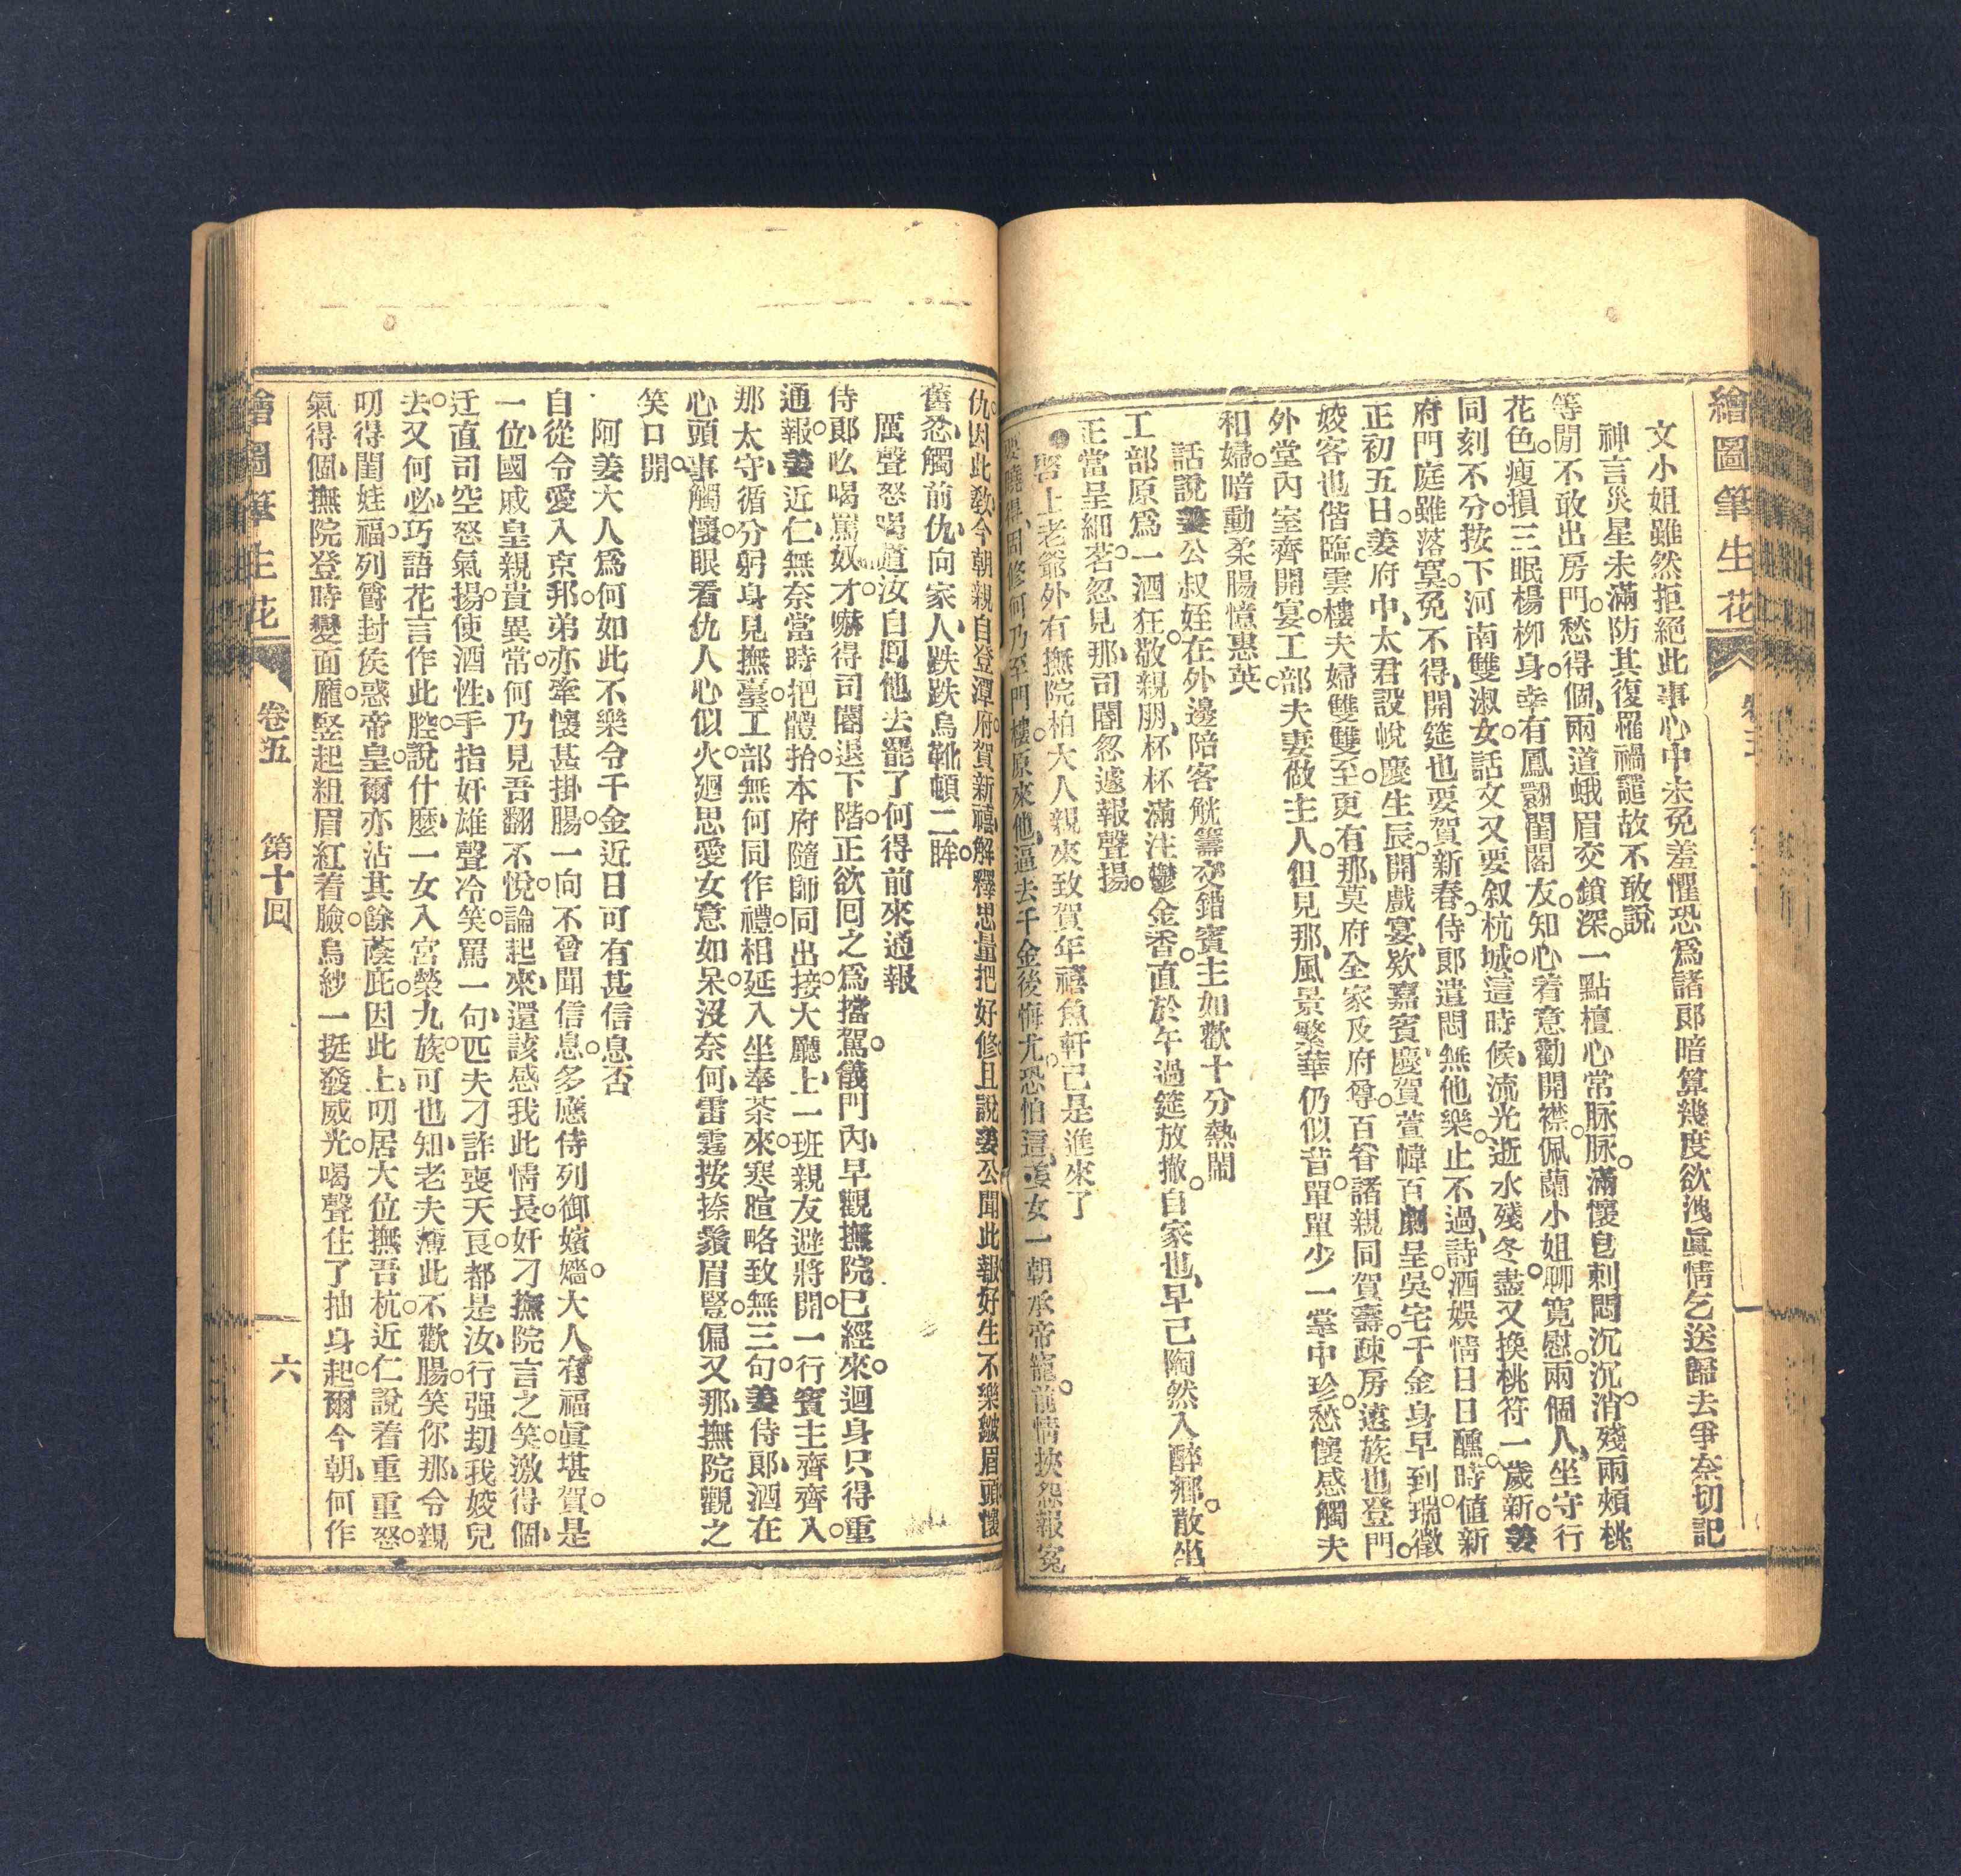 繪圖筆生花
文小姐雖然拒絕此事心中未免羞懼恐爲諸郞暗算幾度欲洩眞情乞送歸去爭奈切記
神言災星未滿防其復罹禍譴故不敢說
等閒不敢出房門愁得個兩道蛾眉交鎖深一點檀心常脉脉滿懷皀刺悶沉沉消殘兩頰桃
花色瘦損三眠楊柳身幸有鳳翾閨閣友知心着意勸開襟佩蘭小姐聊寛慰兩個人坐守行
同刻不分按下河南雙淑女話文又要叙杭城這時候流光逝水殘冬盡又換桃符一歲新姜
府門庭雖落寞免不得開筵也要賀新春侍郞遣悶無他樂止不過詩酒娛情日日醺時值新
正初五日姜府中太君設帨慶生辰開戲宴欵嘉賓慶賀萱幃百劇呈吳宅千金身早到瑞徵
姣客也偕臨雲樓夫婦雙雙至更有那莫府全家及府尊百眷諸親同賀壽疎房遠族也登門
外堂內室齊開宴工部夫妻做主人但見那風景繁華仍似昔單單少一掌中珍愁懷感觸夫
和婦暗動柔腸憶惠英
話說姜公叔姪在外邊陪客觥籌交錯賓主如歡十分熱鬧
工部原爲一酒狂敬親朋杯杯滿注鬱金香直於午過筵放撤自家也早已陶然入醉鄉散坐
正當呈細茗忽見那司閽忽遽報聲揚
啓上老爺外有撫院柏大人親來致賀年禧魚軒已是進來了
要曉得因修何乃至門樓原來他逼去千金後悔尤恐怕這姜女一朝承帝寵前情挾怨報寃
仇因此敎今朝親自登潭府賀新禧解釋思量把好修且說姜公聞此報好生不樂皺眉頭懷
舊忿觸前仇向家人跌跌烏靴頓二眸
厲聲怒喝道汝自回他去罷了何得前來通報
侍郞吆喝罵奴才嚇得司閽退下階正欲回之爲擋駕儀門內早觀撫院已經來迴身只得重
通報姜近仁無奈當時把體抬本府隨師同出接大廳上一班親友避將開一行賓主齊齊入
那太守循分躬身見撫臺工部無何同作禮相延入坐奉茶來寒暄略致無三句姜侍郞酒在
心頭事觸懷眼看仇人心似火廻思愛女意如呆沒奈何雷霆按捺鬚眉豎偏又那撫院觀之
笑口開
阿姜大人爲何如此不樂令千金近日可有甚信息否
自從令愛入京邦弟亦牽懷甚掛腸一向不曾聞信息多應侍列御嬪嬙大人有福眞堪賀是
一位國戚皇親貴異常何乃見吾翻不悅論起來還該感我此情長奸刁撫院言之笑激得個
迂直司空怒氣揚使酒性手指奸雄聲冷笑罵一句匹夫刁詐喪天良都是汝行强刧我姣兒
去又何必巧語花言作此腔說什麽一女入宮榮九族可也知老夫薄此不歡腸笑你那令親
叨得閨娃福列爵封侯惑帝皇爾亦沾其餘蔭庇因此上叨居大位撫吾杭近仁說着重重怒
氣得個撫院登時變面龐竪起粗眉紅着臉烏紗一挺發威光喝聲住了抽身起爾今朝何作
繪圖筆生花
卷五
第十回
六